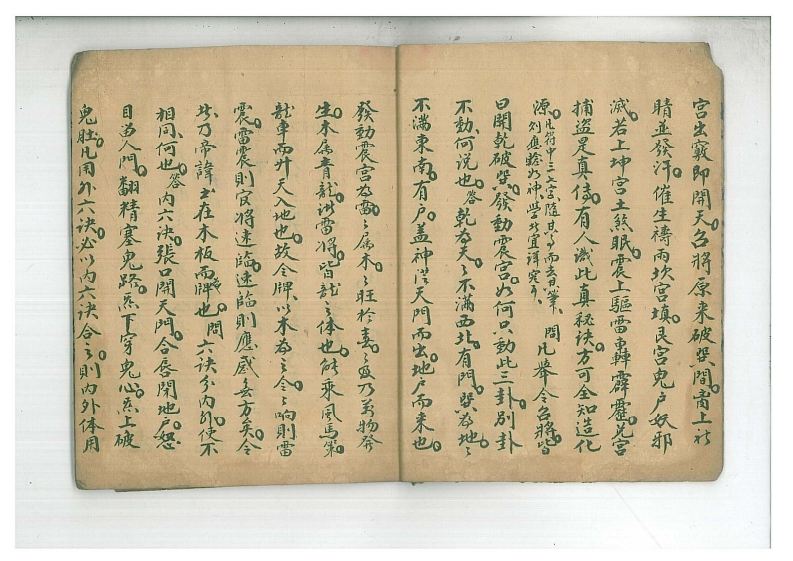 宮出竅即開天名將原來破巽間嵩上社
睛並發汗催生禱雨坎宮塡艮宮鬼戶妖邪
滅若上坤宮土煞眠震上驅雷轟霹靂兌宮
捕盜是真俦有人識此真秘訣方可全知造化
源凡符中三六宮隨其而去且筆問凡舉令召將皆
曰開乾破巽發動震宮如何只動此三卦別卦
不動何說也答乾為天天不滿西北有門巽為地地
不滿東南有戶蓋神從天門而出地戶而來也
發動震宮為雷雷屬木木旺於春春乃萬物發
生木屬青龍此雷將皆龍之體也能乘風馬策
龍車而升天入地也故令牌以木為之令響則雷
震雷震則官將速臨速臨則應感多方矣令
此乃帝諱書在木板而牌也問六訣分內外使不
相同何也答內六訣張口開天門合唇閉地戶怒
目為人門翻精塞鬼路炁下穿鬼心炁上破
鬼肚凡用外六訣必以內六訣合之則內外体用